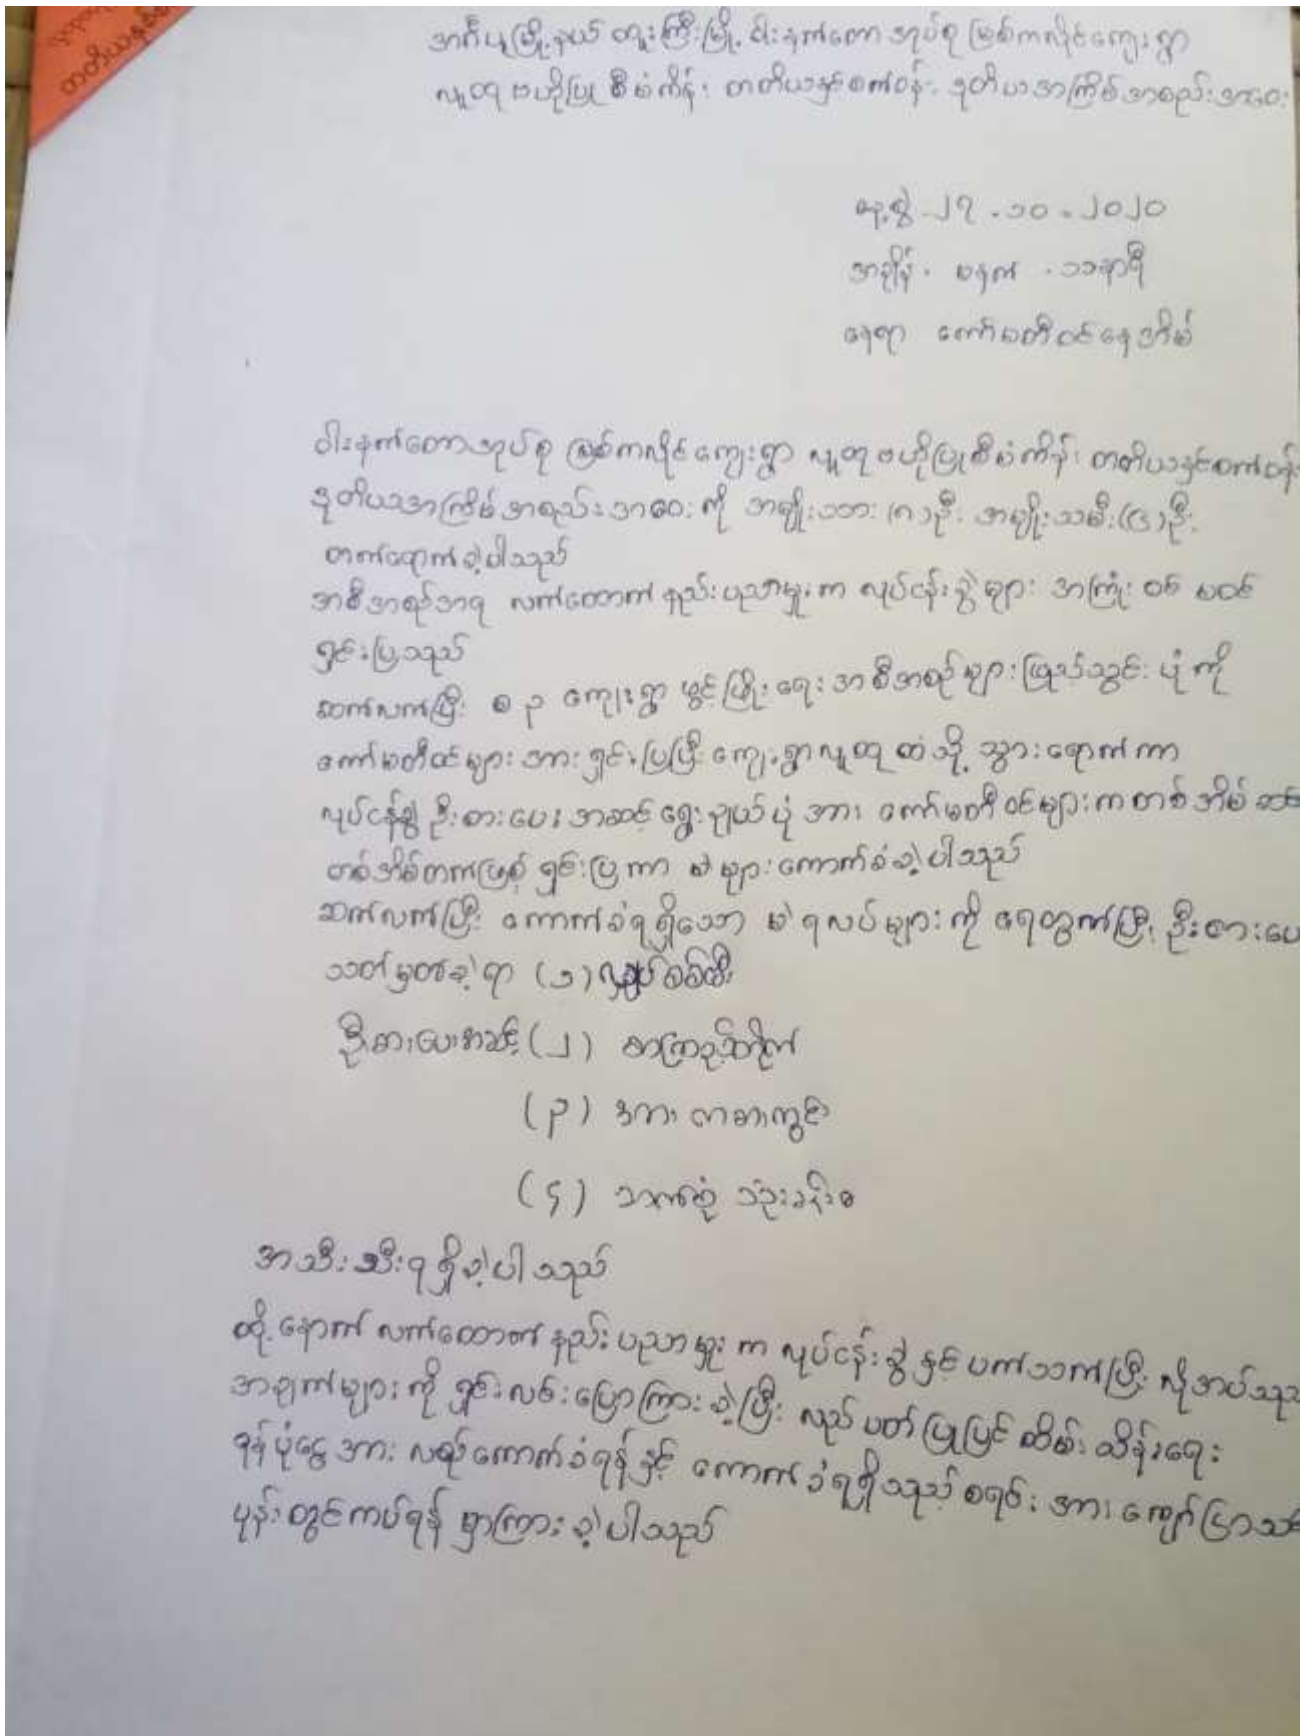 တတိယနှစ်
အင်္ဂပူမြို့နယ် ထူးကြီးမြို့ ဝါးနက်တောအုပ်စု မြစ်ကလိုင်ကျေးရွာ
လူထုဗဟိုပြုစီမံကိန်း တတိယနှင်စက်ဝန်း ဒုတိယအကြိမ်အစည်းအဝေး
နေ့စွဲ - ၂၇ . ၁၀ . ၂၀၂၀
အချိန် . မနက် . ၁၁နာရီ
နေရာ ကော်မတီဝင်နေအိမ်
ဝါးနက်တောအုပ်စု မြစ်ကလိုင်ကျေးရွာ လူထုဗဟိုပြုစီမံကိန်း တတိယနှင်စက်ဝန်း
ဒုတိယအကြိမ်အစည်းအဝေးကို အမျိုးသား (၈)ဦး အမျိုးသမီး(၆)ဦး
တက်ရောက်ခဲ့ပါသည်
အစီအစဉ်အရ လက်ထောက်နည်းပညာမှူးက လုပ်ငန်းခွဲများ အကြုံး ဝင် မဝင်
ရှင်းပြသည်
ဆက်လက်ပြီး စ ဥ ကျေးရွာ ဖွင့်ဖြိုးရေး အစီအစဉ်များဖြည့်သွင်း ပုံကို
ကော်မတီဝင်များအား ရှင်းပြပြီး ကျေးရွာလူထု ထံသို့ သွားရောက်ကာ
လုပ်ငန်ခွဲ ဦးစားပေးအဆင့် ရွေးချယ်ပုံ အား ကော်မတီဝင်များက တစ်အိမ် ဆင်း
တစ်အိမ်တက်ဖြင့် ရှင်းပြကာ မဲများကောက်ခံခဲ့ပါသည်
ဆက်လက်ပြီး ကောက်ခံရရှိသော မဲ ရလပ်များကို ရေတွက်ပြီး ဦးစားပေး
သတ်မှတ်ခဲ့ရာ (၁) လျှပ်စစ်မီး
ဦးစားပေးအဆင့် (၂) စာကြည့်တိုက်
(၃) အား ကစားကွင်း
(၄) သက်စုံ
အသီးသီးရရှိခဲ့ပါသည်
ထို့နောက် လက်ထောက်နည်းပညာမှူးက လုပ်ငန်းခွဲနှင့်ပက်သက်ပြီး လိုအပ်သည့်
အချက်များကို ရှင်းလင်းပြောကြားခဲ့ပြီး လည်ပတ်ပြုပြင်ထိမ်းသိန်းရေး
ရန်ပုံငွေအား လစဉ်ကောက်ခံရန်နှင့် ကောက်ခံရရှိသည့်စရင်းအား ကျော်ငြာသင်
ပုန်းတွင်ကပ်ရန် မှာကြားခဲ့ပါသည်